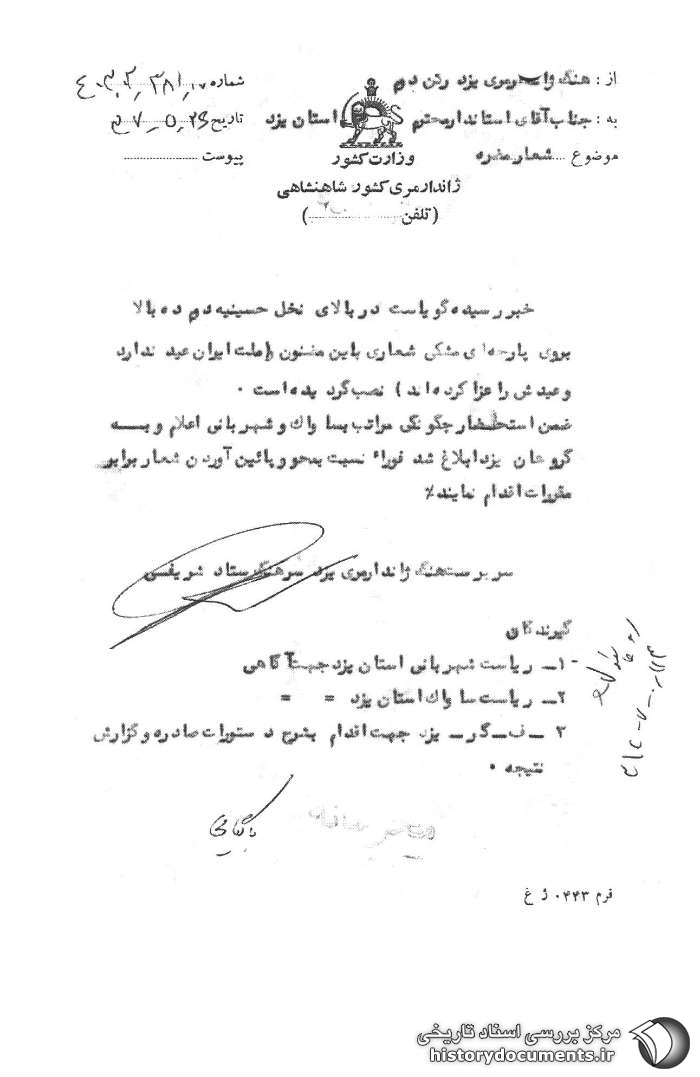 از : هنگ ژاندارمری یزد رکن دوم
شماره
به : جناب آقای استاندار محترم استان یزد
تاریخ
موضوع شعار مضره
پیوست
وزارت کشور
ژاندارمری کشور شاهنشاهی
(تلفن )
خبر رسیده گویاست در بالای نخل حسینیه دوم ده بالا
بروی پارچه‌ای مشکی شعاری باین مضنون (ملت ایران عید ندارد
وعیدش را عزا کرده‌اند ) نصب گردیده است .
ضمن استحضار چگونگی مراتب بساواک و شهربانی اعلام و بـــه
گروهان یزد ابلاغ شد فوراً نسبت بمحو و پائین آوردن شعار برابر
مقررات اقدام نمایند٪
سرپرست هنگ ژاندارمری یزد سرهنگ ستاد شریفی
گیرندگان
۱ـ ریاست شهربانی استان یزد جهت آگاهی
۲ـ ریاست ساواک استان یزد = =
۳ ـ ف ـ گر ـ یزد جهت اقدام بشرح دستورات صادره و گزارش
نتیجه .
بایگانی
فرم ۰۴۴۳ ژ غ
مرکز بررسی اسناد تاریخی
historydocuments.ir